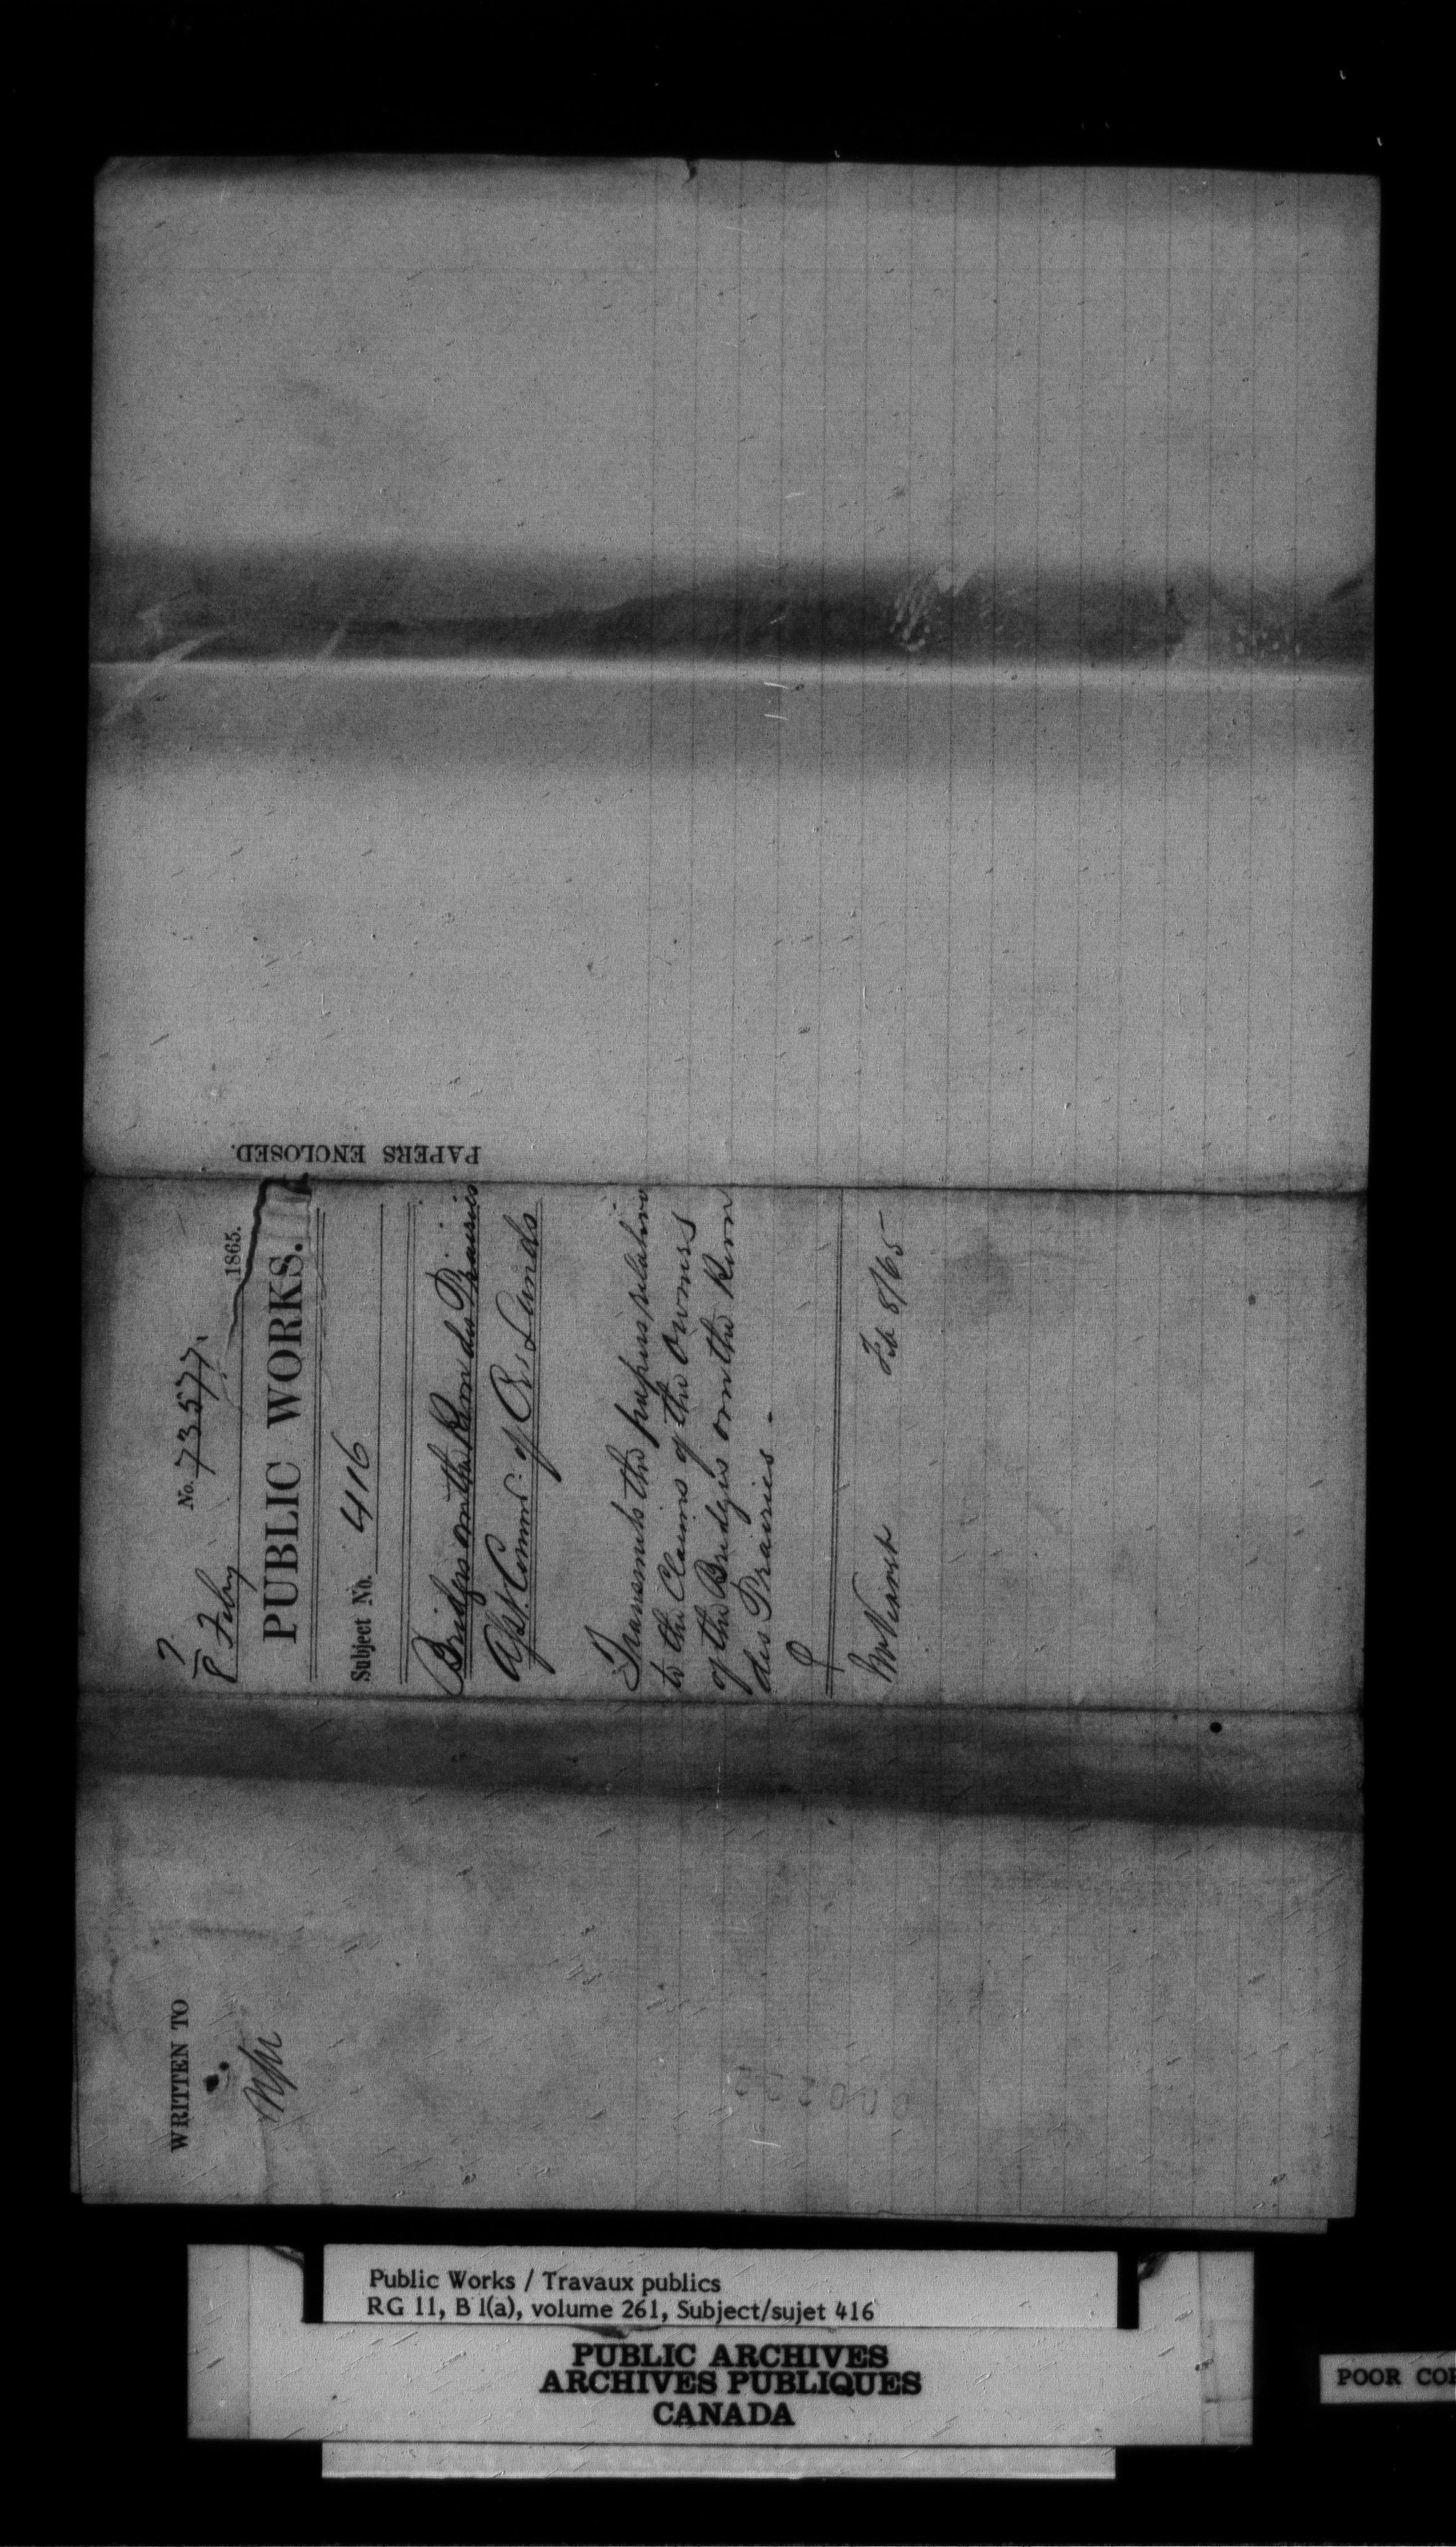 No. 73577.
7
8 Feby 1865.
PUBLIC WORKS.
Subject No. 416
Bridges on the River des Prairies
Asst. Commr. of Crs Lands
Transmits the papers relative
to the Claims of the Owners
of the Bridges on the River
des Prairies -
Feb 8/65
PAPERS ENCLOSED.
WRITTEN TO
Public Works / Travaux publics
RG 11, B 1(a), volume 261, Subject/sujet 416
PUBLIC ARCHIVES
ARCHIVES PUBLIQUES
CANADA
POOR CO